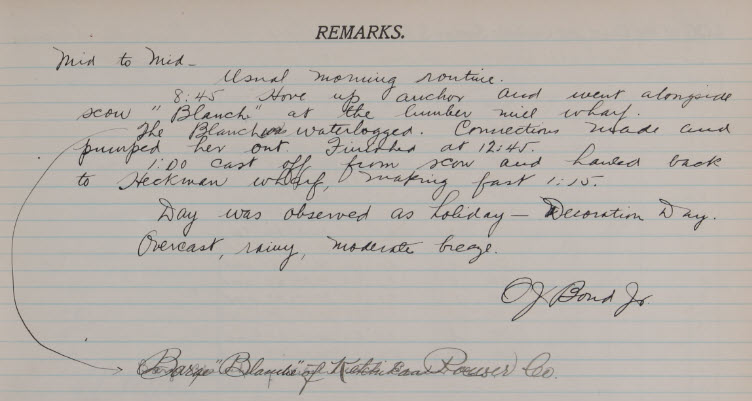 REMARKS.
Mid to Mid -
Usual morning routine.
8:45 Hove up anchor and went alongside
scow "Blanch" at the lumber mill wharf.
The Blanche was waterlogged. Connections made and
pumped her out. Finished at 12:45.
1:00 cast off from scow and hauled back
to Heckman wharf, making fast 1:15.
Day was observed as holiday — Decoration Day.
Overcast, rainy, moderate breeze.
OJ Bond Jr.
Barge "Blanche" of Ketchikan Power Co.